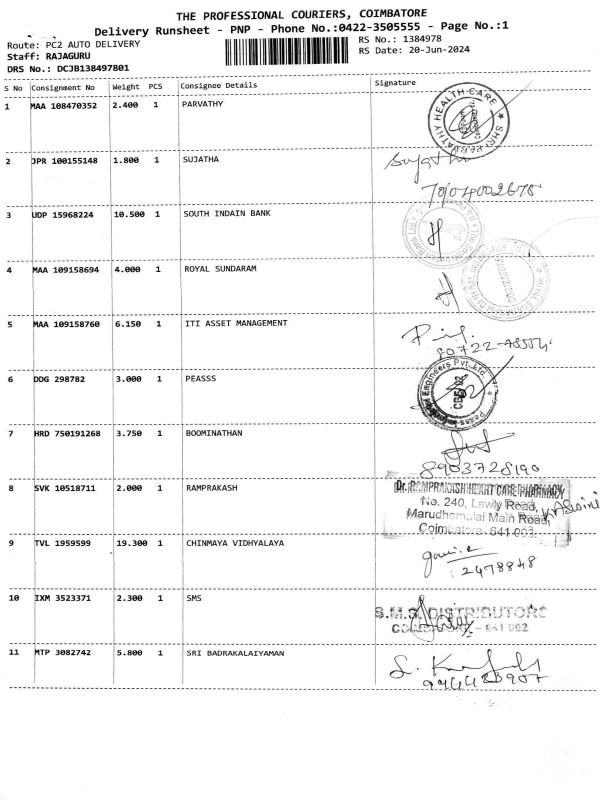 THE PROFESSIONAL COURIERS, COIMBATORE
Delivery Runsheet - PNP - Phone No.:0422-3505555 - Page No.:1
Route: PC2 AUTO DELIVERY RS No.: 1384978
Staff: RAJAGURU RS Date: 20-Jun-2024
DRS No.: DCJB138497801
S No Consignment No Weight PCS Consignee Details Signature
1 MAA 108470352 2.400 1 PARVATHY
HEALTH CARE
2 JPR 100155148 1.800 1 SUJATHA
Sujatha
3 UDP 15968224 10.500 1 SOUTH INDAIN BANK
4 MAA 109158694 4.000 1 ROYAL SUNDARAM
5 MAA 109158760 6.150 1 ITI ASSET MANAGEMENT
6 DDG 298782 3.000 1 PEASSS
Pvt. Ltd.
7 HRD 750191268 3.750 1 BOOMINATHAN
8903728190
8 SVK 10518711 2.000 1 RAMPRAKASH
Dr. RAMPRAKASH HEART CARE PHARMACY
No. 240, Lawly Road,
Marudhamalai Main Road,
Coimbatore - 641 003.
9 TVL 1959599 19.300 1 CHINMAYA VIDHYALAYA
2478848
10 IXM 3523371 2.300 1 SMS
S.M.S. DISTRIBUTORS
COIMBATORE - 641 002
11 MTP 3082742 5.800 1 SRI BADRAKALAIYAMAN